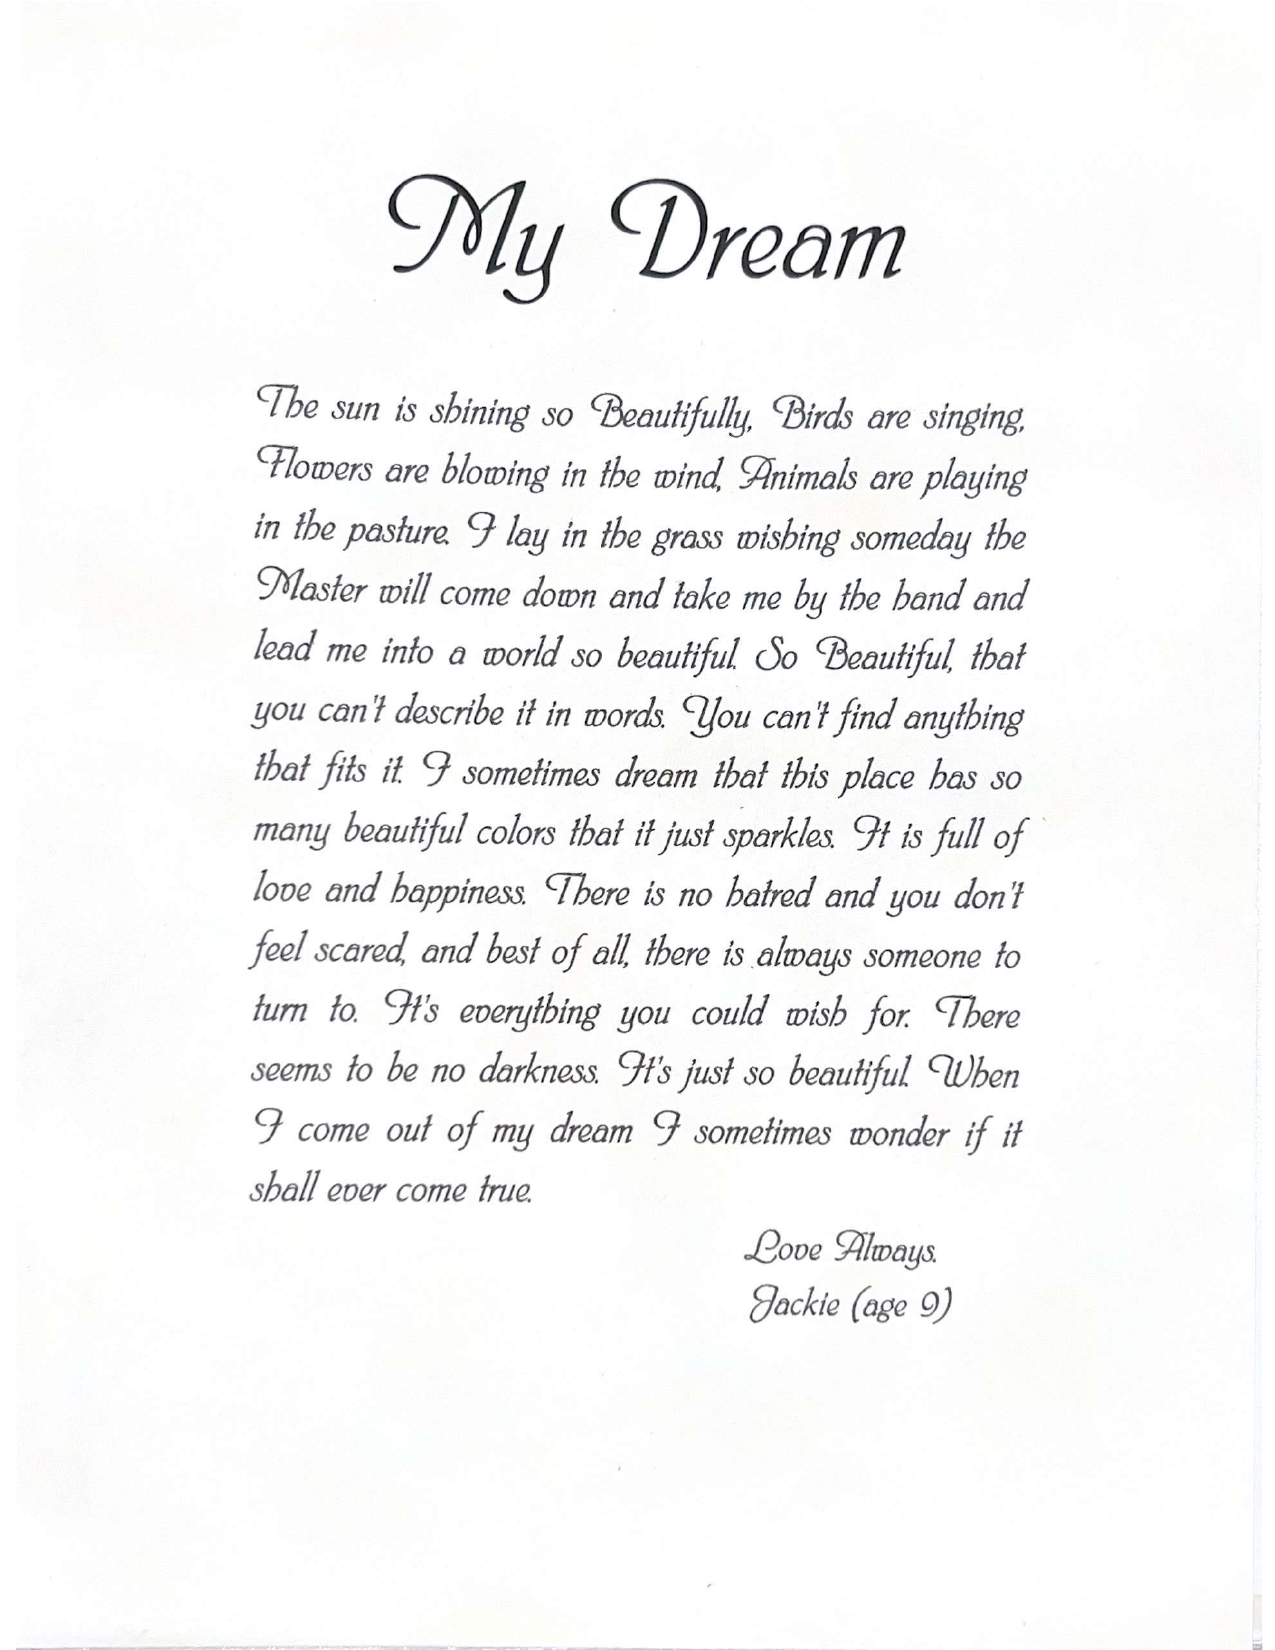 My Dream
The sun is shining so Beautifully, Birds are singing,
Flowers are blowing in the wind, Animals are playing
in the pasture. I lay in the grass wishing someday the
Master will come down and take me by the hand and
lead me into a world so beautiful. So Beautiful, that
you can't describe it in words. You can't find anything
that fits it. I sometimes dream that this place has so
many beautiful colors that it just sparkles. It is full of
love and happiness. There is no hatred and you don't
feel scared, and best of all, there is always someone to
turn to. It's everything you could wish for. There
seems to be no darkness. It's just so beautiful. When
I come out of my dream I sometimes wonder if it
shall ever come true.
Love Always.
Jackie (age 9)